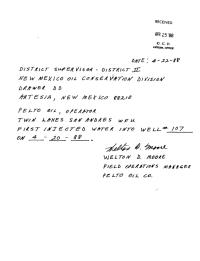 RECEIVED
APR 25 '88
O. C. D.
ARTESIA, OFFICE
DATE: 4-22-88
DISTRICT SUPERVISOR - DISTRICT II
NEW MEXICO OIL CONSERVATION DIVISION
DRAWER DD
ARTESIA, NEW MEXICO 88210
PELTO OIL, OPERATOR
TWIN LAKES SAN ANDRES WFU
FIRST INJECTED WATER INTO WELL # 107
ON 4 - 20 - 88 .
Welton D. Moore
WELTON D. MOORE
FIELD OPERATIONS MANAGER
PELTO OIL CO.